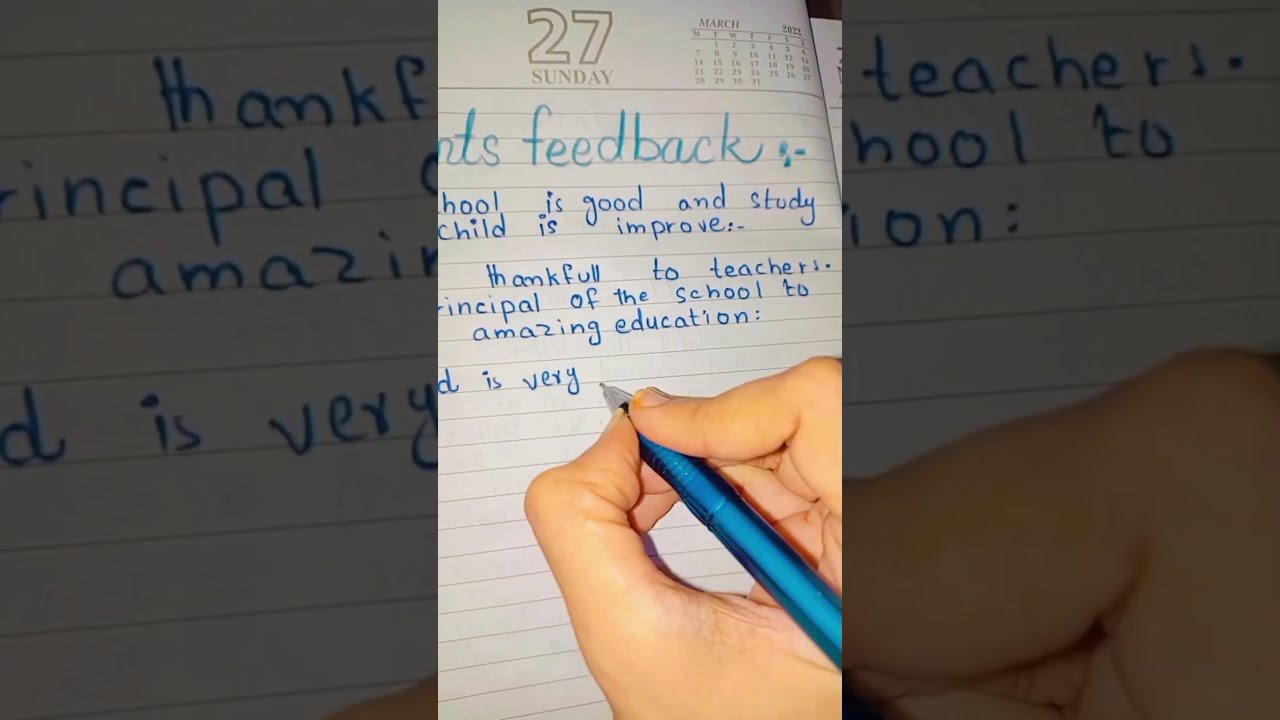 27
SUNDAY
MARCH 2022
M T W T F S S
1 2 3 4 5 6
7 8 9 10 11 12 13
14 15 16 17 18 19 20
21 22 23 24 25 26 27
28 29 30 31
nts feedback :-
hool is good and study
child is improve:-
thankfull to teachers.
rincipal of the school to
amazing education:
d is very